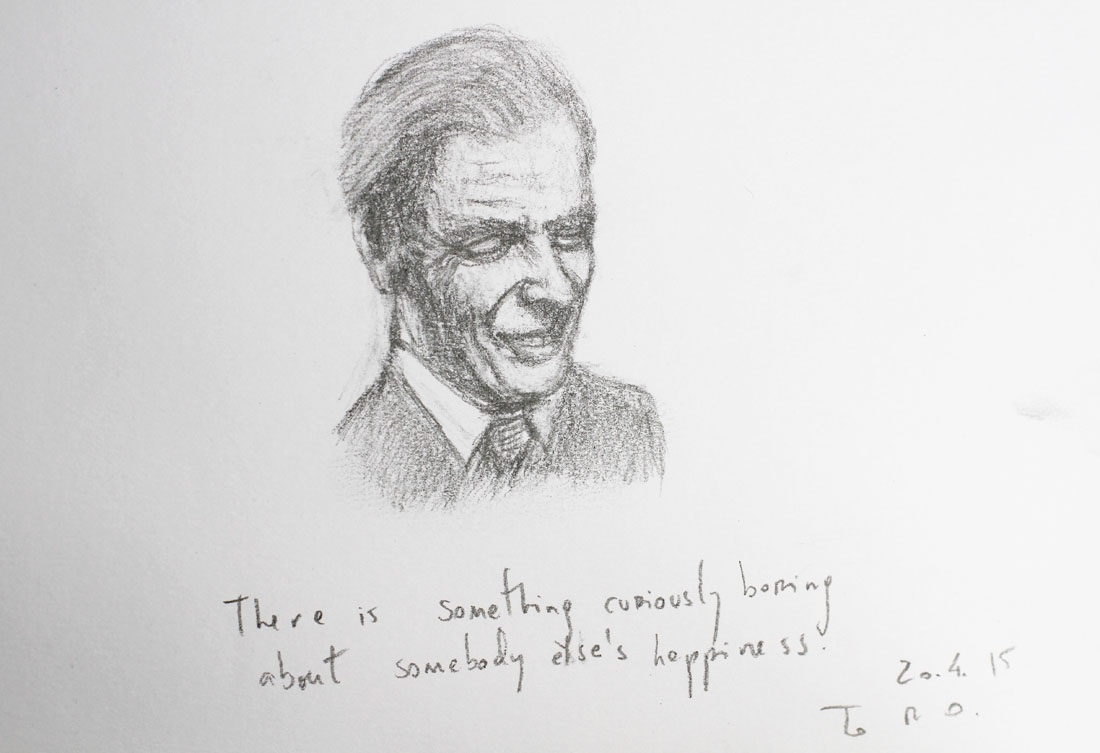 There is something curiously boring
about somebody else's happiness.
20.4.15
To R.O.